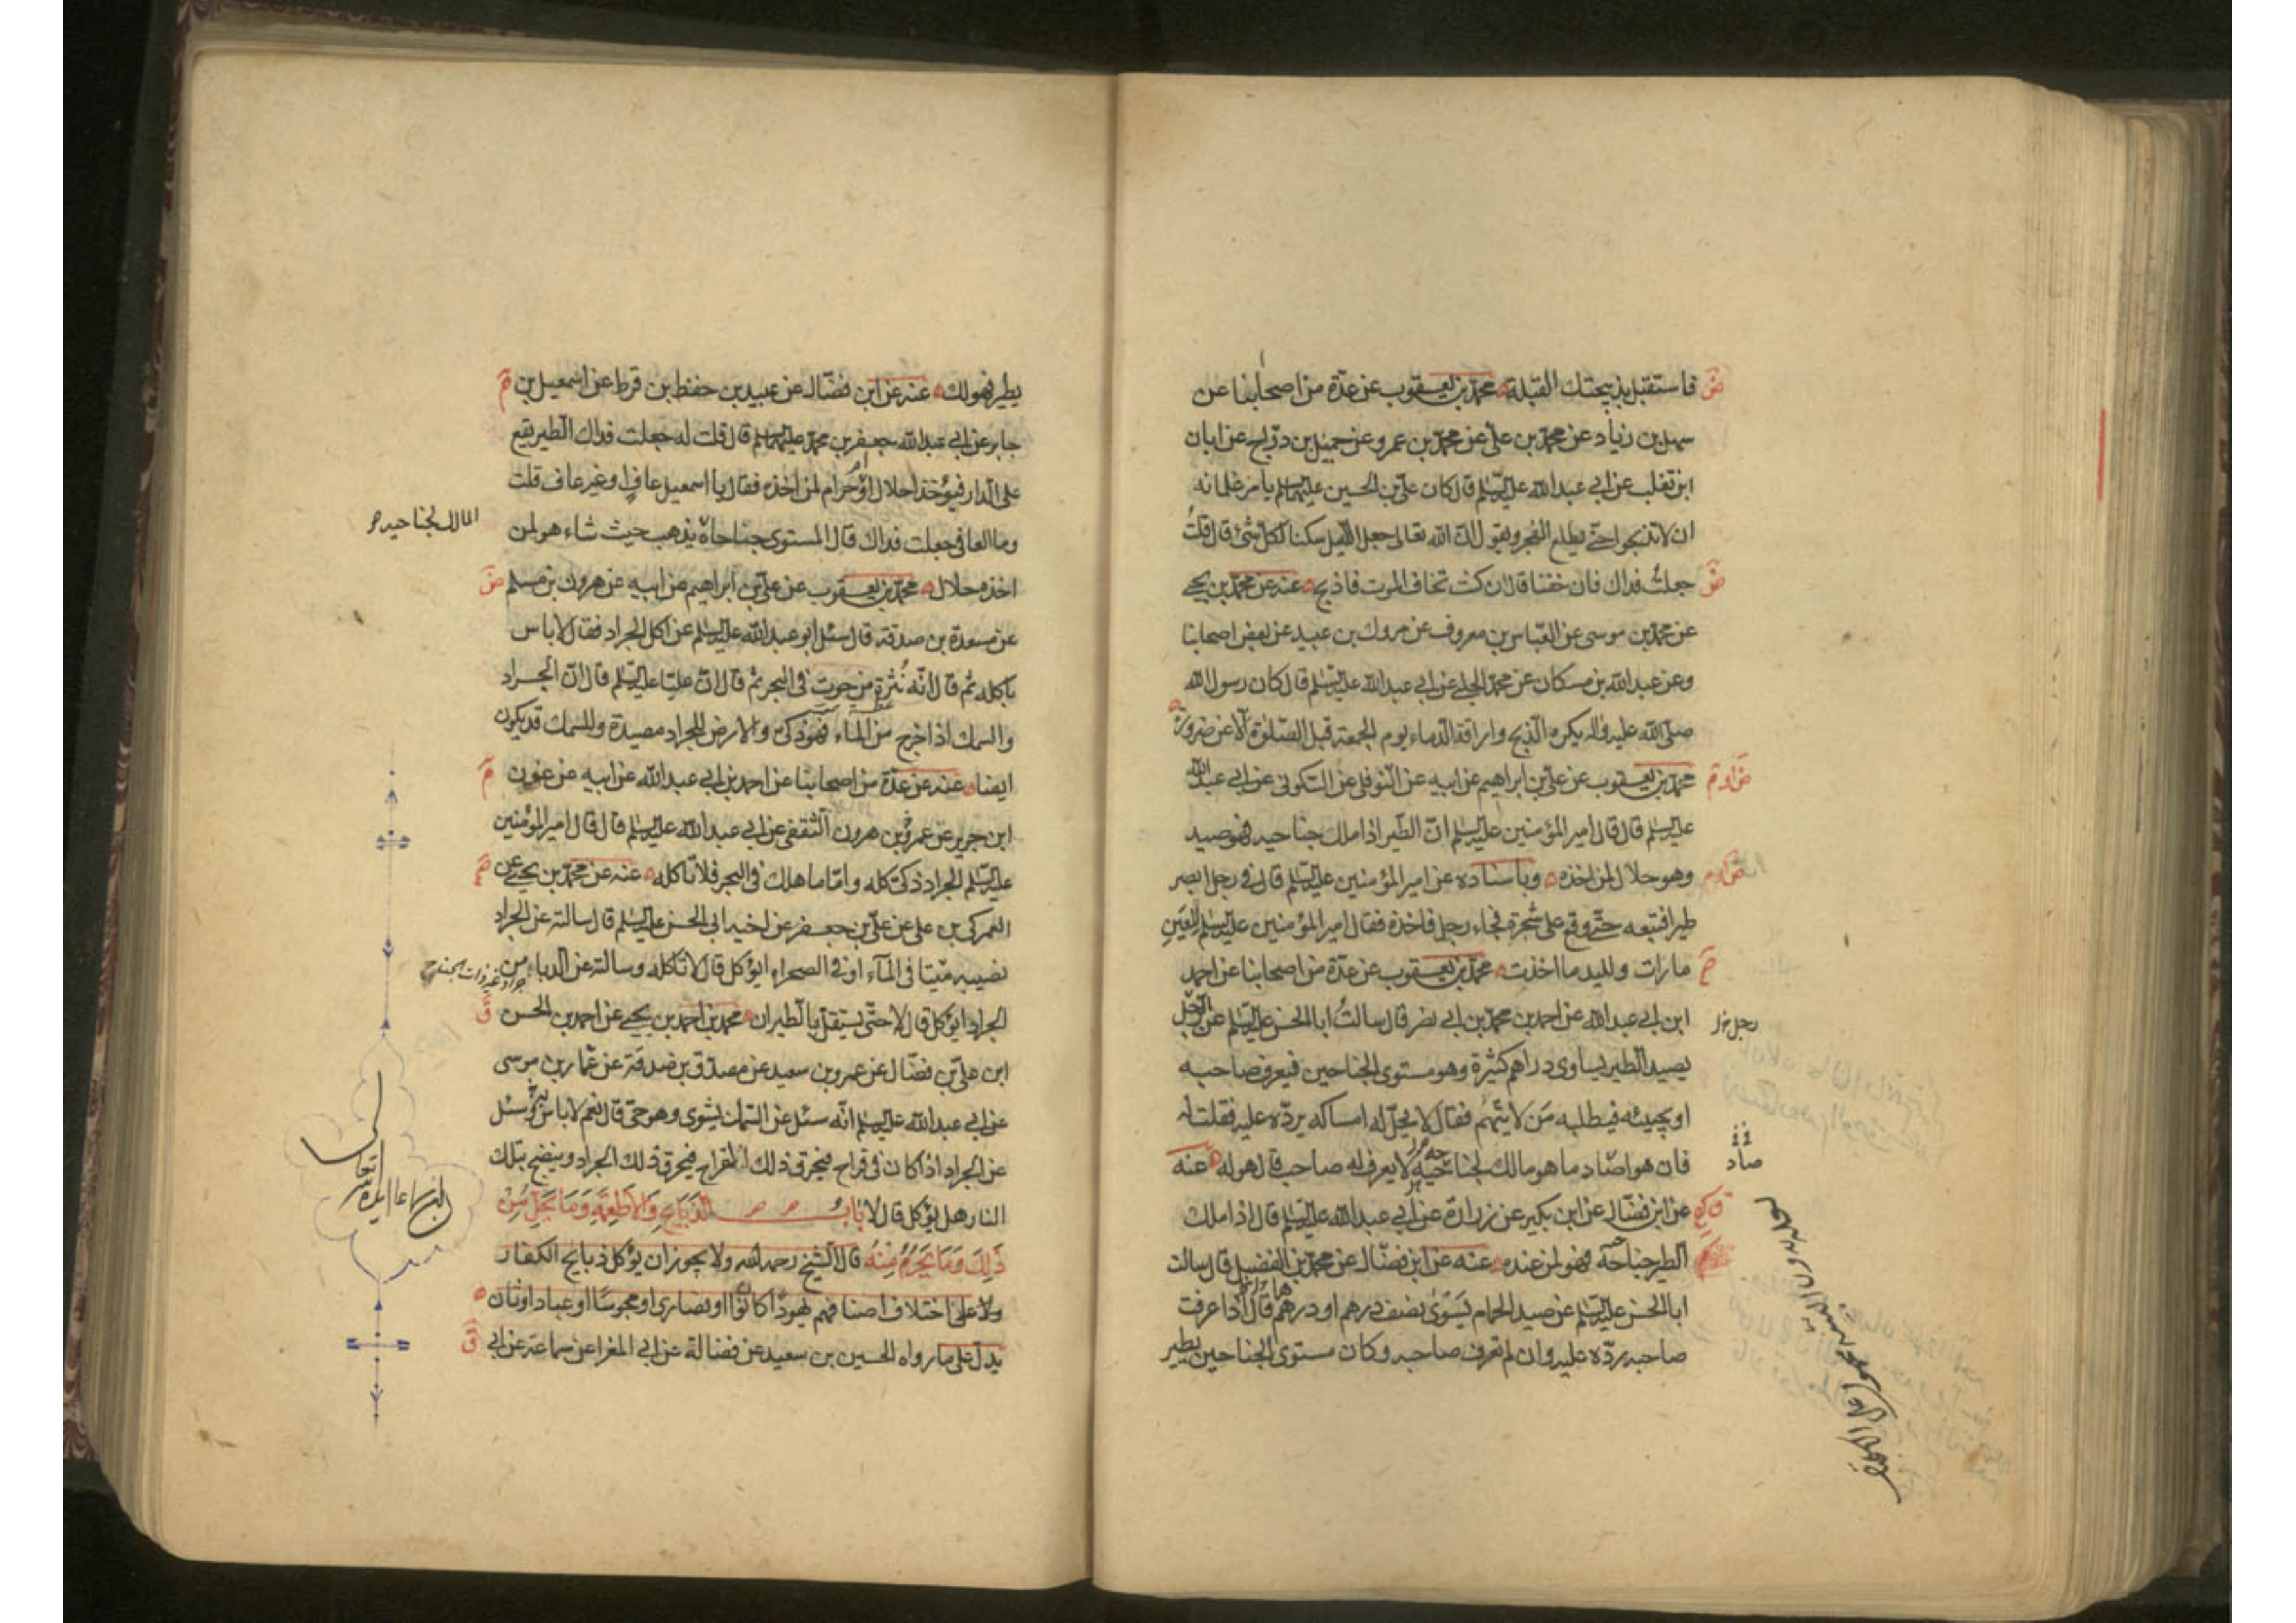 فاستقبل بذبيحتك القبلة محمد بن يعقوب عن عدة من اصحابنا عن
سهل بن زياد عن محمد بن علي عن محمد بن عمرو عن جميل بن دراج عن ابان
ابن تغلب عن ابي عبد الله عليه السلم قال كان علي بن الحسين عليهما السلم يامر غلمانه
ان لا تذبحوا حتى يطلع الفجر ويقول ان الله تعالى جعل الليل سكنا لكل شئ قال قلت
جعلت فداك فان خفنا قال ان كنت تخاف الموت فاذبح عنه عن محمد بن يحيى
عن محمد بن موسى عن العباس بن معروف عن مروك بن عبيد عن بعض اصحابنا
وعن عبد الله بن مسكان عن محمد الحلبي عن ابي عبد الله عليه السلم قال كان رسول الله
صلى الله عليه واله يكره الذبح واراقة الدماء يوم الجمعة قبل الصلوة الا عن ضرورة
محمد بن يعقوب عن علي بن ابراهيم عن ابيه عن النوفلي عن السكوني عن ابي عبد الله
عليه السلم قال قال امير المؤمنين عليه السلم ان الطير اذا ملك جناحيه فهو صيد
وهو حلال لمن اخذه وباسناده عن امير المؤمنين عليه السلم قال في رجل ابصر
طيرا فتبعه حتى وقع على شجرة فجاء رجل فاخذه فقال امير المؤمنين عليه السلم للعين
ما رات ولليد ما اخذت محمد بن يعقوب عن عدة من اصحابنا عن احمد
ابن ابي عبد الله عن احمد بن محمد بن ابي نصر قال سالت ابا الحسن عليه السلم عن الرجل
يصيد الطير يساوي دراهم كثيرة وهو مستوى الجناحين فيعرف صاحبه
او يجيئه فيطلبه من لا يتهم فقال لا يحل له امساكه يرده عليه فقلت له
فان هو اصاد ما هو مالك لجناحيه لا يعرف له صاحب قال هو له عنه
عن ابن فضال عن ابن بكير عن زرارة عن ابي عبد الله عليه السلم قال اذا ملك
الطير جناحه فهو لمن عنده عنه عن ابن فضال عن محمد بن الفضيل قال سالت
ابا الحسن عليه السلم عن صيد الحمام يسوى نصف درهم او درهم قال اذا عرفت
صاحبه رده عليه وان لم تعرف صاحبه وكان مستوى الجناحين يطير
صاد
يطير فهو لك عنه عن ابن فضال عن عبيد بن حفظ بن قرط عن اسمعيل بن
جابر عن ابي عبد الله جعفر بن محمد عليهما السلم قال قلت له جعلت فداك الطير يقع
على الدار فيؤخذ احلال هو ام حرام لمن اخذه فقال يا اسمعيل عاف او غير عاف قلت
وما العافي جعلت فداك قال المستوى جناحاه يذهب حيث شاء هو لمن
المالك لجناحيه
اخذه حلال محمد بن يعقوب عن علي بن ابراهيم عن ابيه عن هرون بن مسلم
عن مسعدة بن صدقة قال سئل ابو عبد الله عليه السلم عن اكل الجراد فقال لا باس
باكله ثم قال انه نثرة من حوت في البحر ثم قال ان عليا عليه السلم قال ان الجراد
والسمك اذا خرج من الماء فهو ذكي والارض للجراد مصيدة وللسمك قد يكون
ايضا عنه عن عدة من اصحابنا عن احمد بن ابي عبد الله عن ابيه عن عون
ابن جرير عن عمرو بن هرون الثقفي عن ابي عبد الله عليه السلم قال قال امير المؤمنين
عليه السلم الجراد ذكي كله واما ما هلك في البحر فلا تاكله عنه عن محمد بن يحيى عن
العمركي بن علي عن علي بن جعفر عن اخيه ابي الحسن عليه السلم قال سالته عن الجراد
نصيبه ميتا في الماء او في الصحراء ايؤكل قال لا تاكله وسالته عن الدباء من
الجراد ايؤكل قال لا حتى يستقل بالطيران محمد بن احمد بن يحيى عن احمد بن الحسن
ابن علي بن فضال عن عمرو بن سعيد عن مصدق بن صدقة عن عمار بن موسى
عن ابي عبد الله عليه السلم انه سئل عن السمك يشوى وهو حي قال نعم لا باس به وسئل
عن الجراد اذا كان في قراح فيحرق ذلك القراح فيحرق ذلك الجراد وينضج بتلك
النار هل يؤكل قال لا باب الذبايح والاطعمة وما يحل من
ذلك وما يحرم منه قال الشيخ رحمه الله ولا يجوز ان يؤكل ذبايح الكفار
ولا على اختلاف اصنافهم يهودا كانوا او نصارى او مجوسا او عباد اوثان
يدل على ما رواه الحسين بن سعيد عن فضالة عن ابي المغرا عن سماعة عن ابي